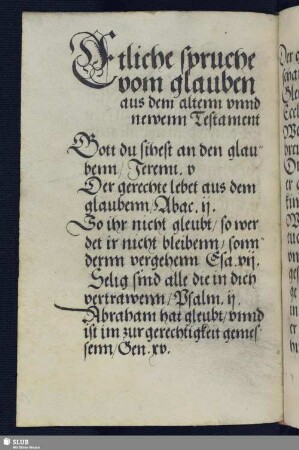 Etliche spruche
vom glauben
aus dem altenn vnnd
newenn Testament
Gott du sihest an den glau-
benn/ Jeremi. v
Der gerechte lebet aus dem
glaubenn/ Abac. ij.
So ihr nicht gleubt/ so wer
det ir nicht bleibenn/ sonn
dernn vergehenn Esa. vij.
Selig sind alle die in dich
vertrawenn/ Psalm. ij.
Abraham hat gleubt/ vnnd
ist im zur gerechtigkeit gemes
senn/ Gen. xv.
SLUB